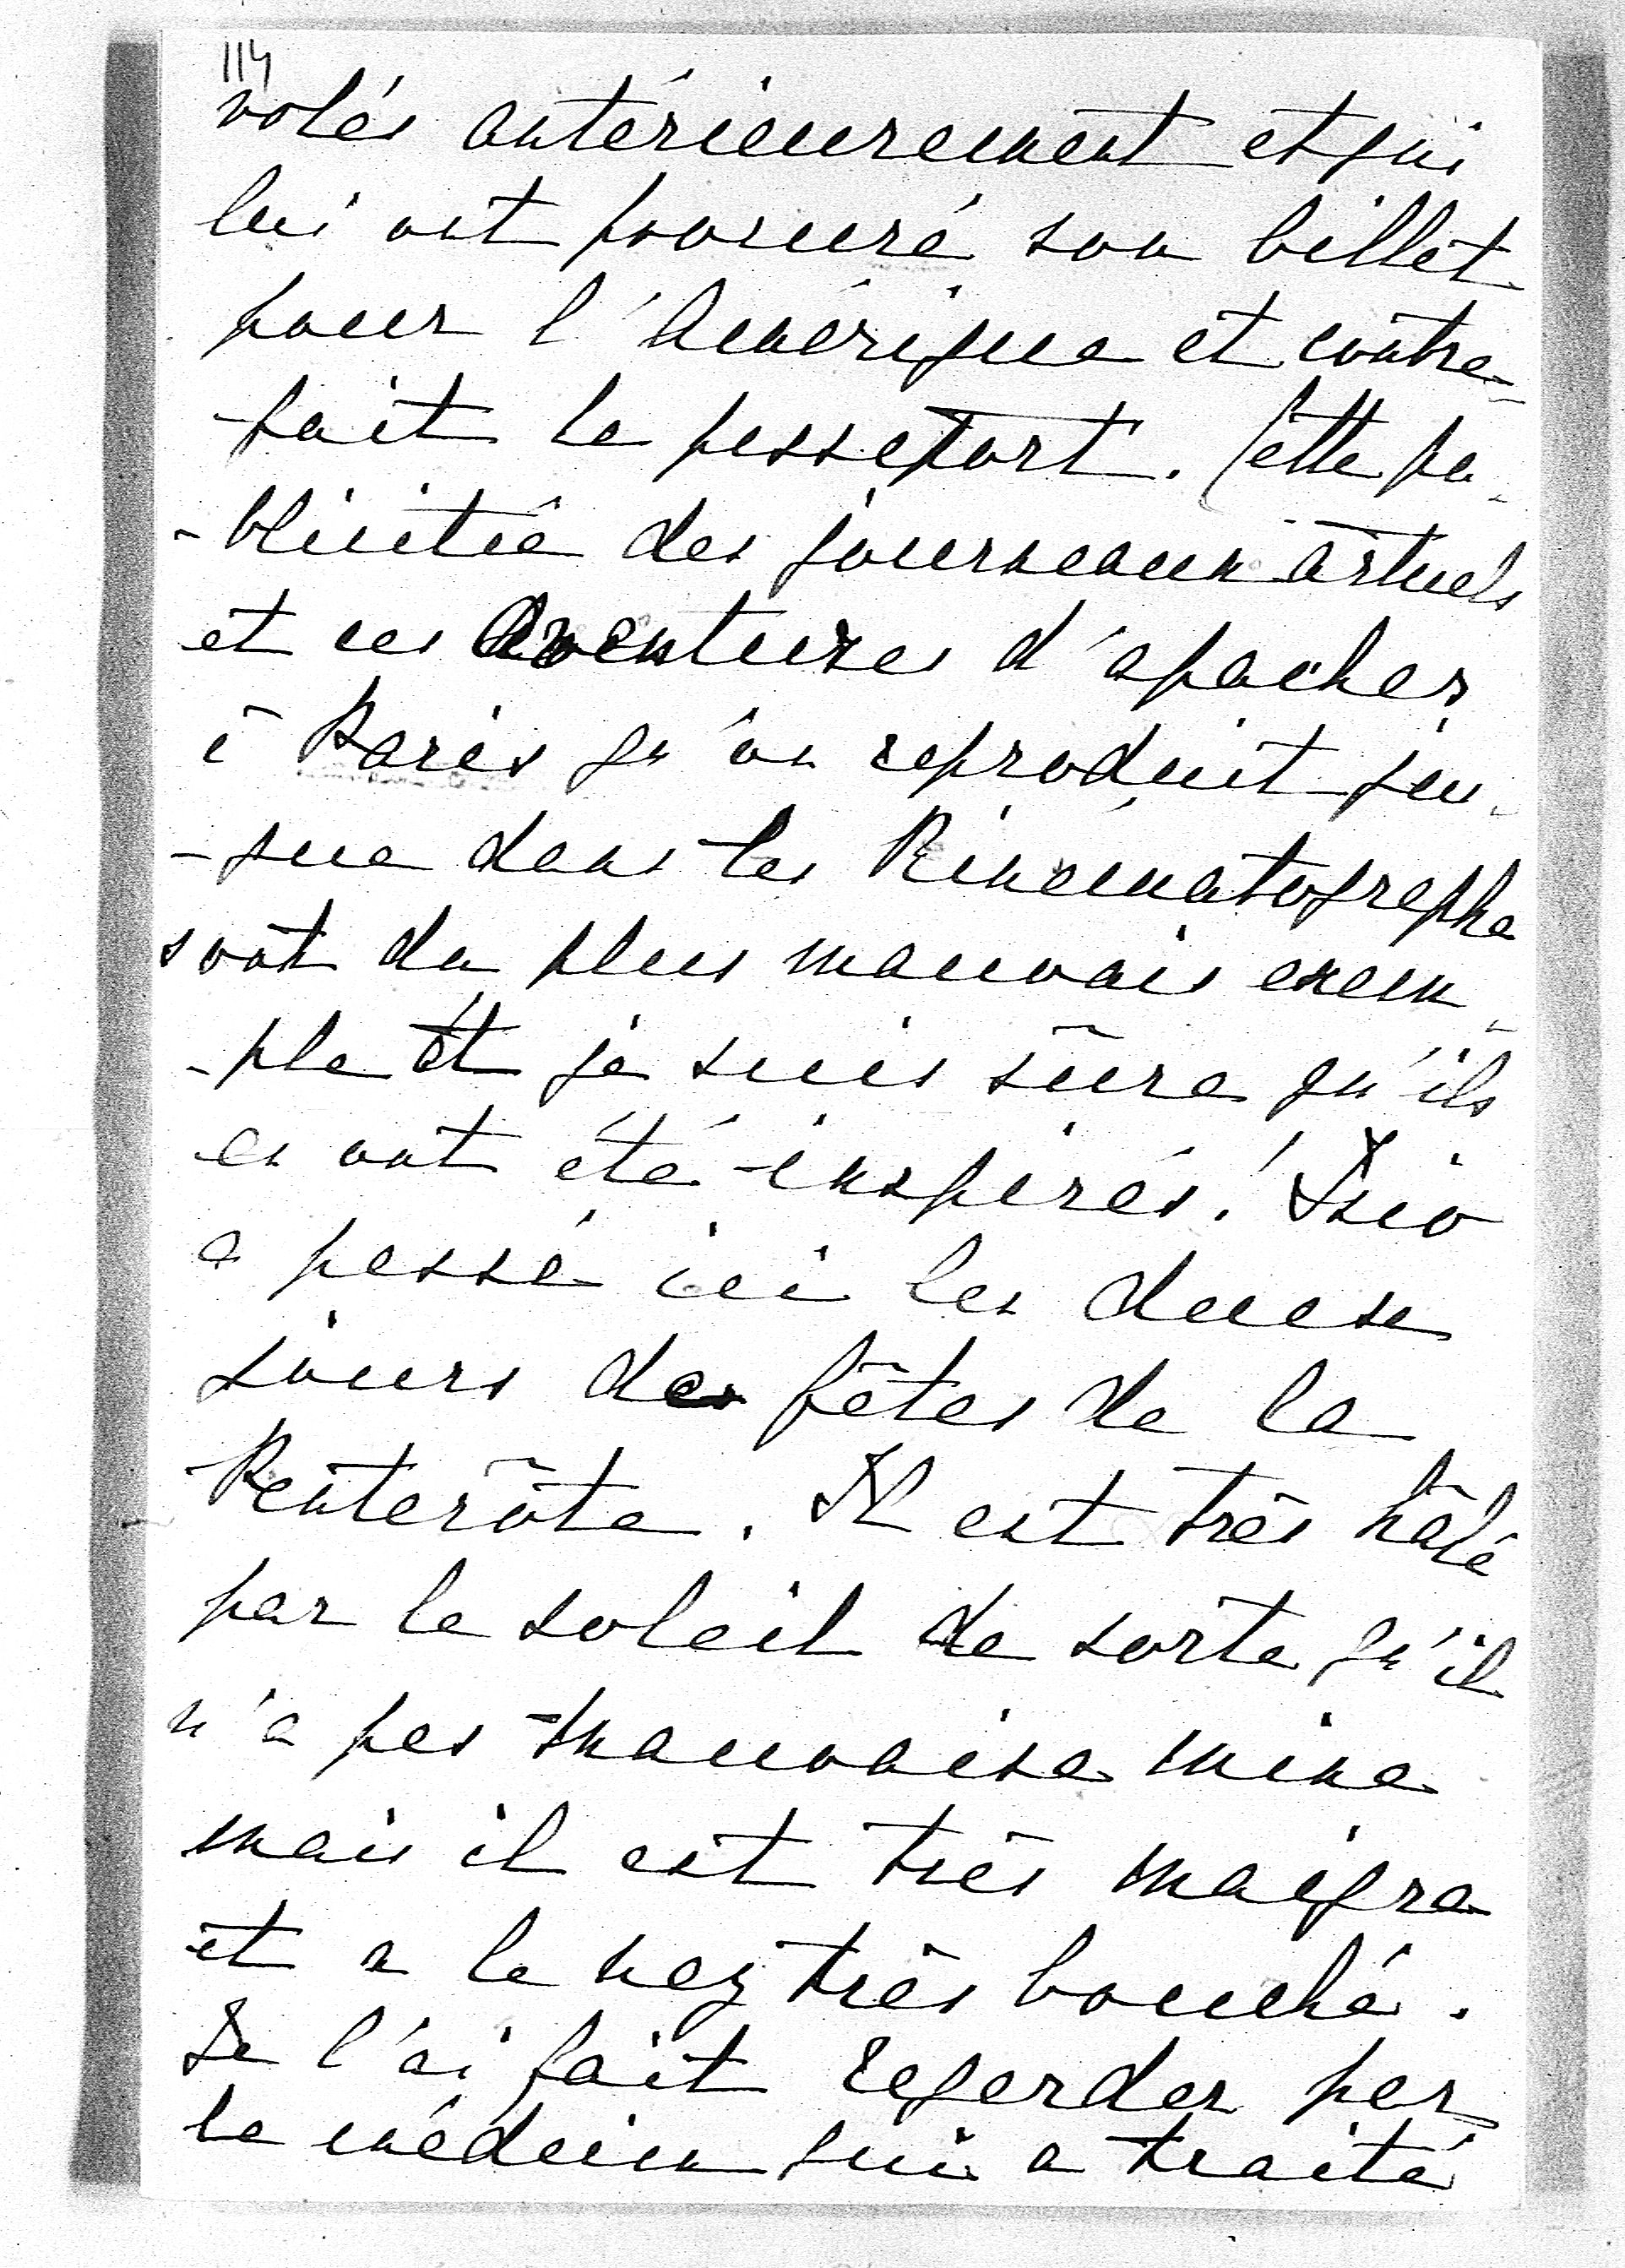 114
volés antérieurement et qui
lui ont procuré son billet
pour l'Amérique et contre-
-fait le passeport. Cette pu-
-blicité des journeaux actuels
et ces aventures d'apaches
à Paris qu'on reproduit jus-
-que dans les Kinématographe
sont du plus mauvais exem-
-ple et je suis sûre qu'ils
en ont été inspirés!
a passé ici les deux
jours des fêtes de la
Pentecôte. Il est très hâlé
par le soleil de sorte qu'il
n'a pas mauvaise mine
mais il est très maigre
et a le nez très bouché.
Je l'ai fait regarder par
le médecin qui a traité